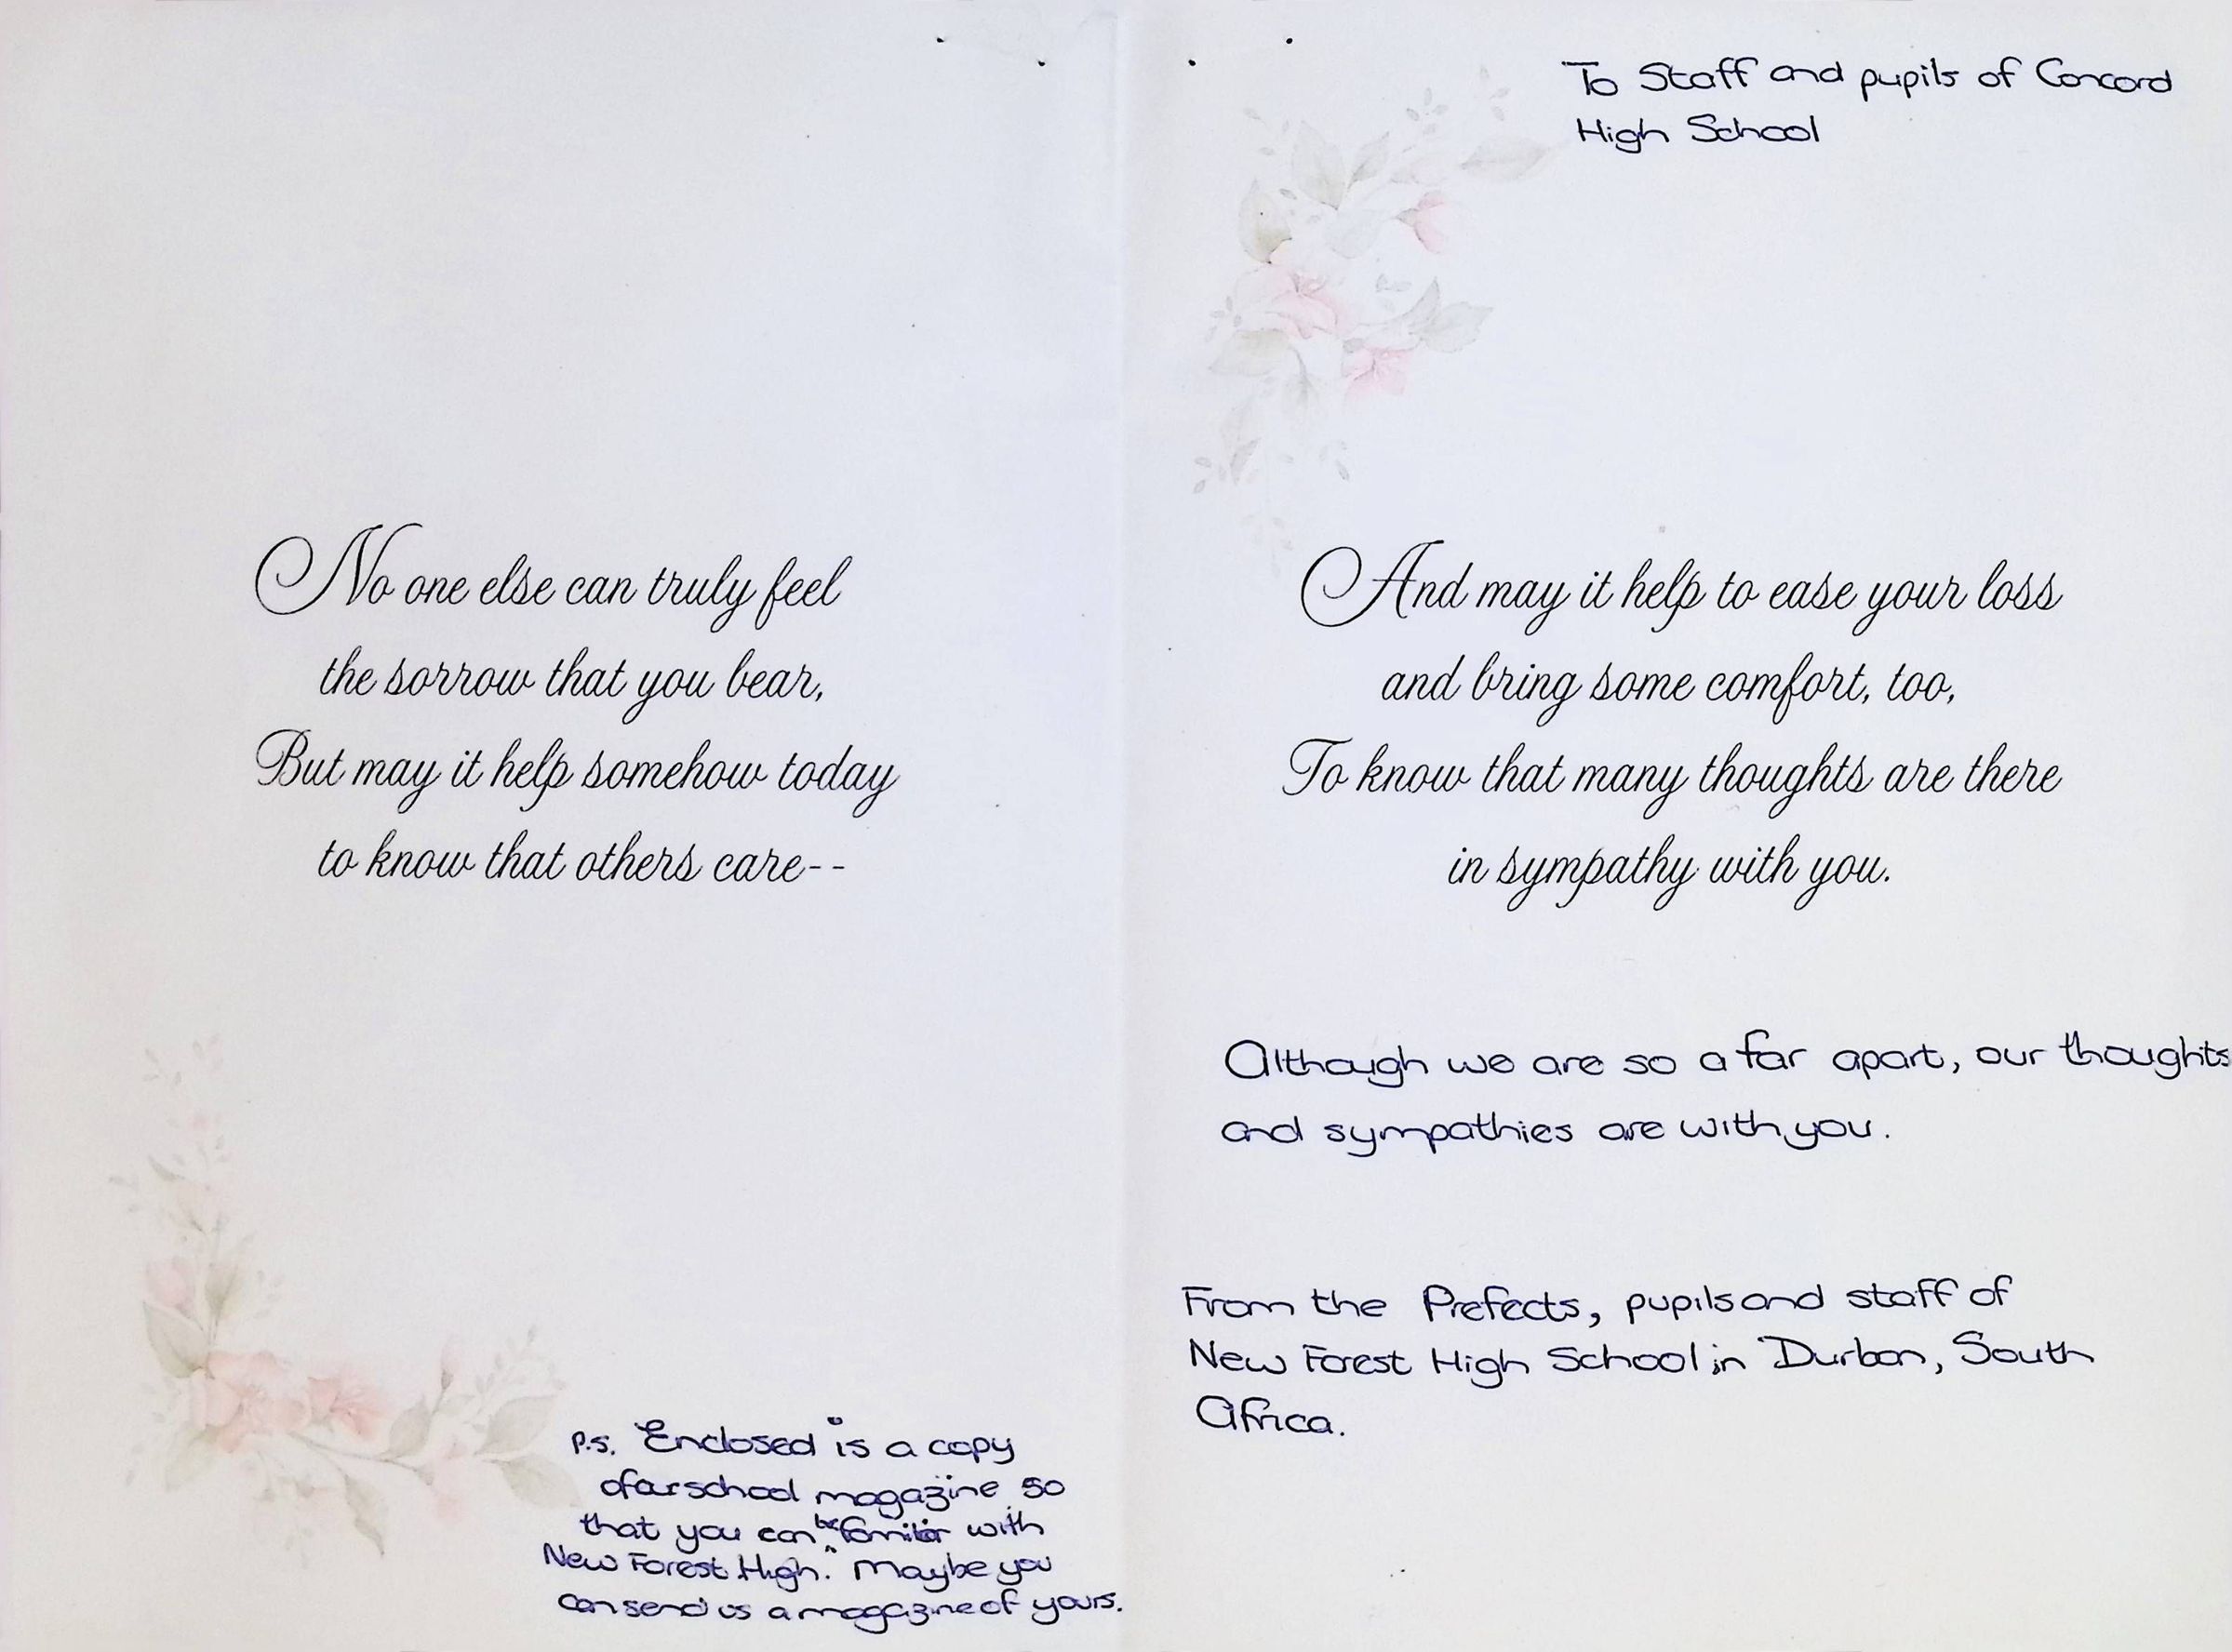 No one else can truly feel
the sorrow that you bear,
But may it help somehow today
to know that others care--
P.S. Enclosed is a copy
of our school magazine so
that you can be familiar with
New Forest High. Maybe you
can send us a magazine of yours.
To Staff and pupils of Concord
High School
And may it help to ease your loss
and bring some comfort, too,
To know that many thoughts are there
in sympathy with you.
Although we are so a far apart, our thoughts
and sympathies are with you.
From the Prefects, pupils and staff of
New Forest High School in Durban, South
Africa.